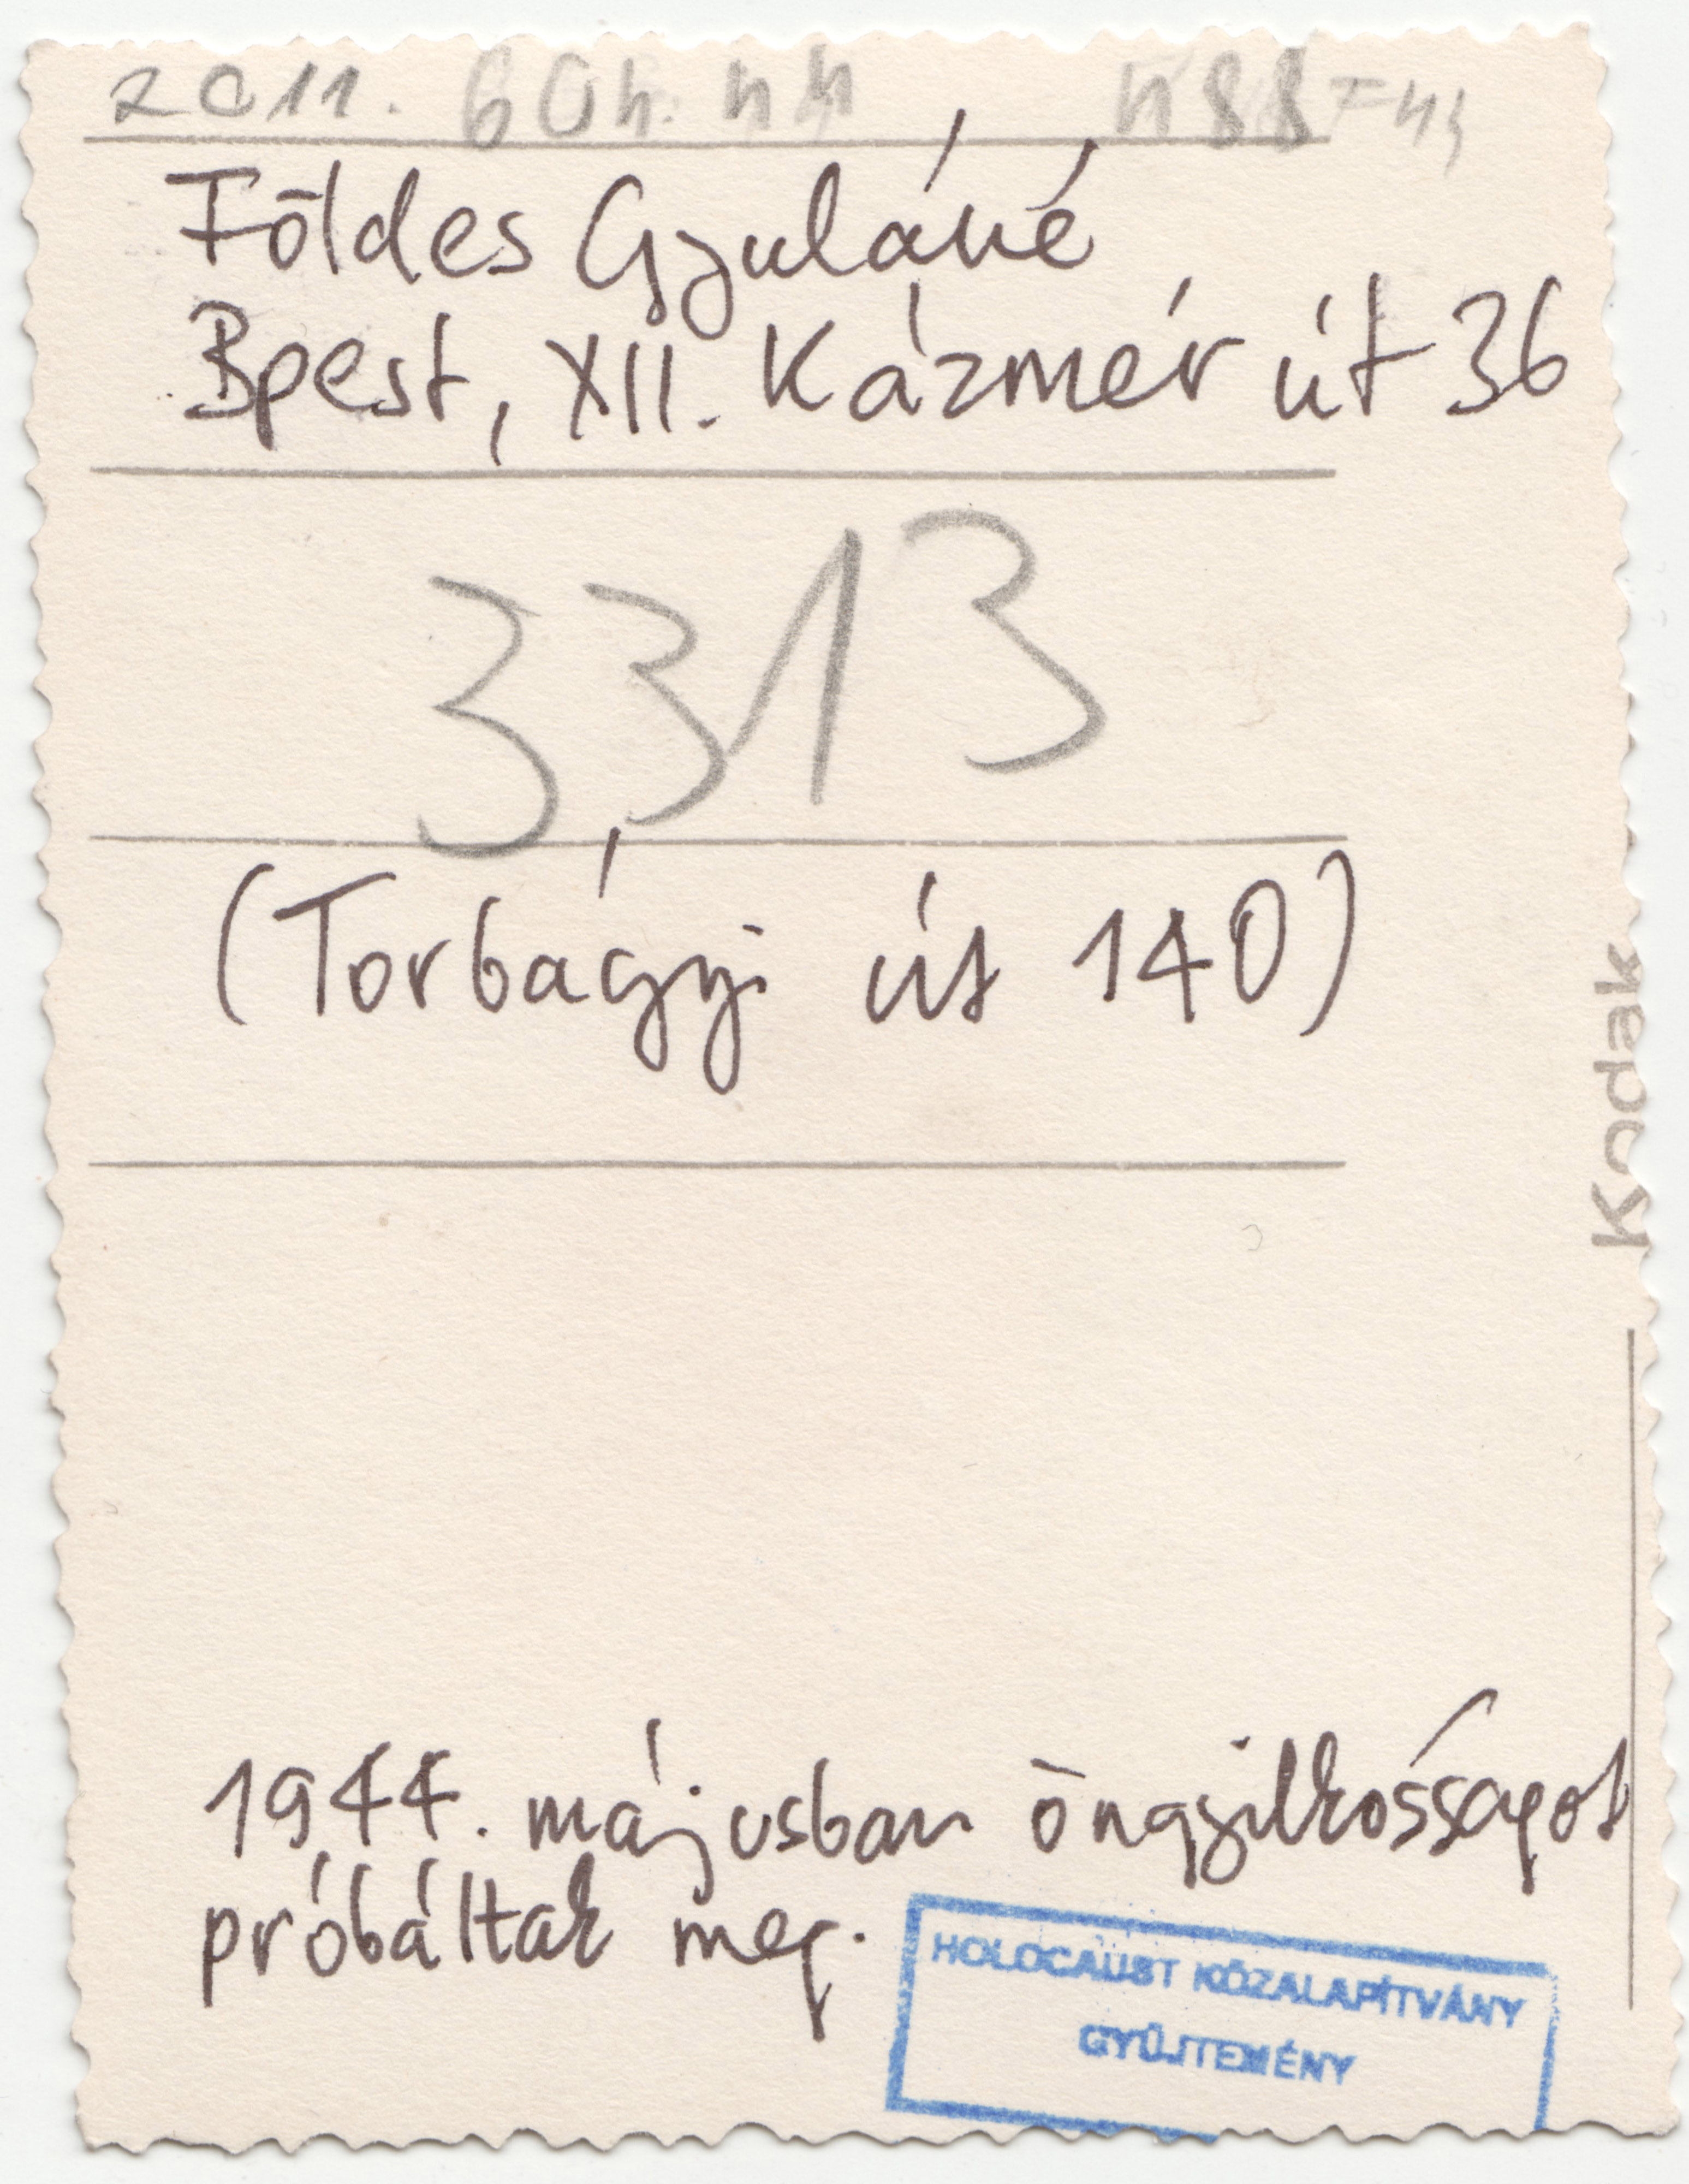 2011.
Földes Gyuláné
Bpest, XII. Kázmér út 36
3313
(Torbágyi út 140)
Kodak
1944. májusban öngyilkosságot
próbáltak meg.
HOLOCAUST KÖZALAPÍTVÁNY
GYŰJTEMÉNY